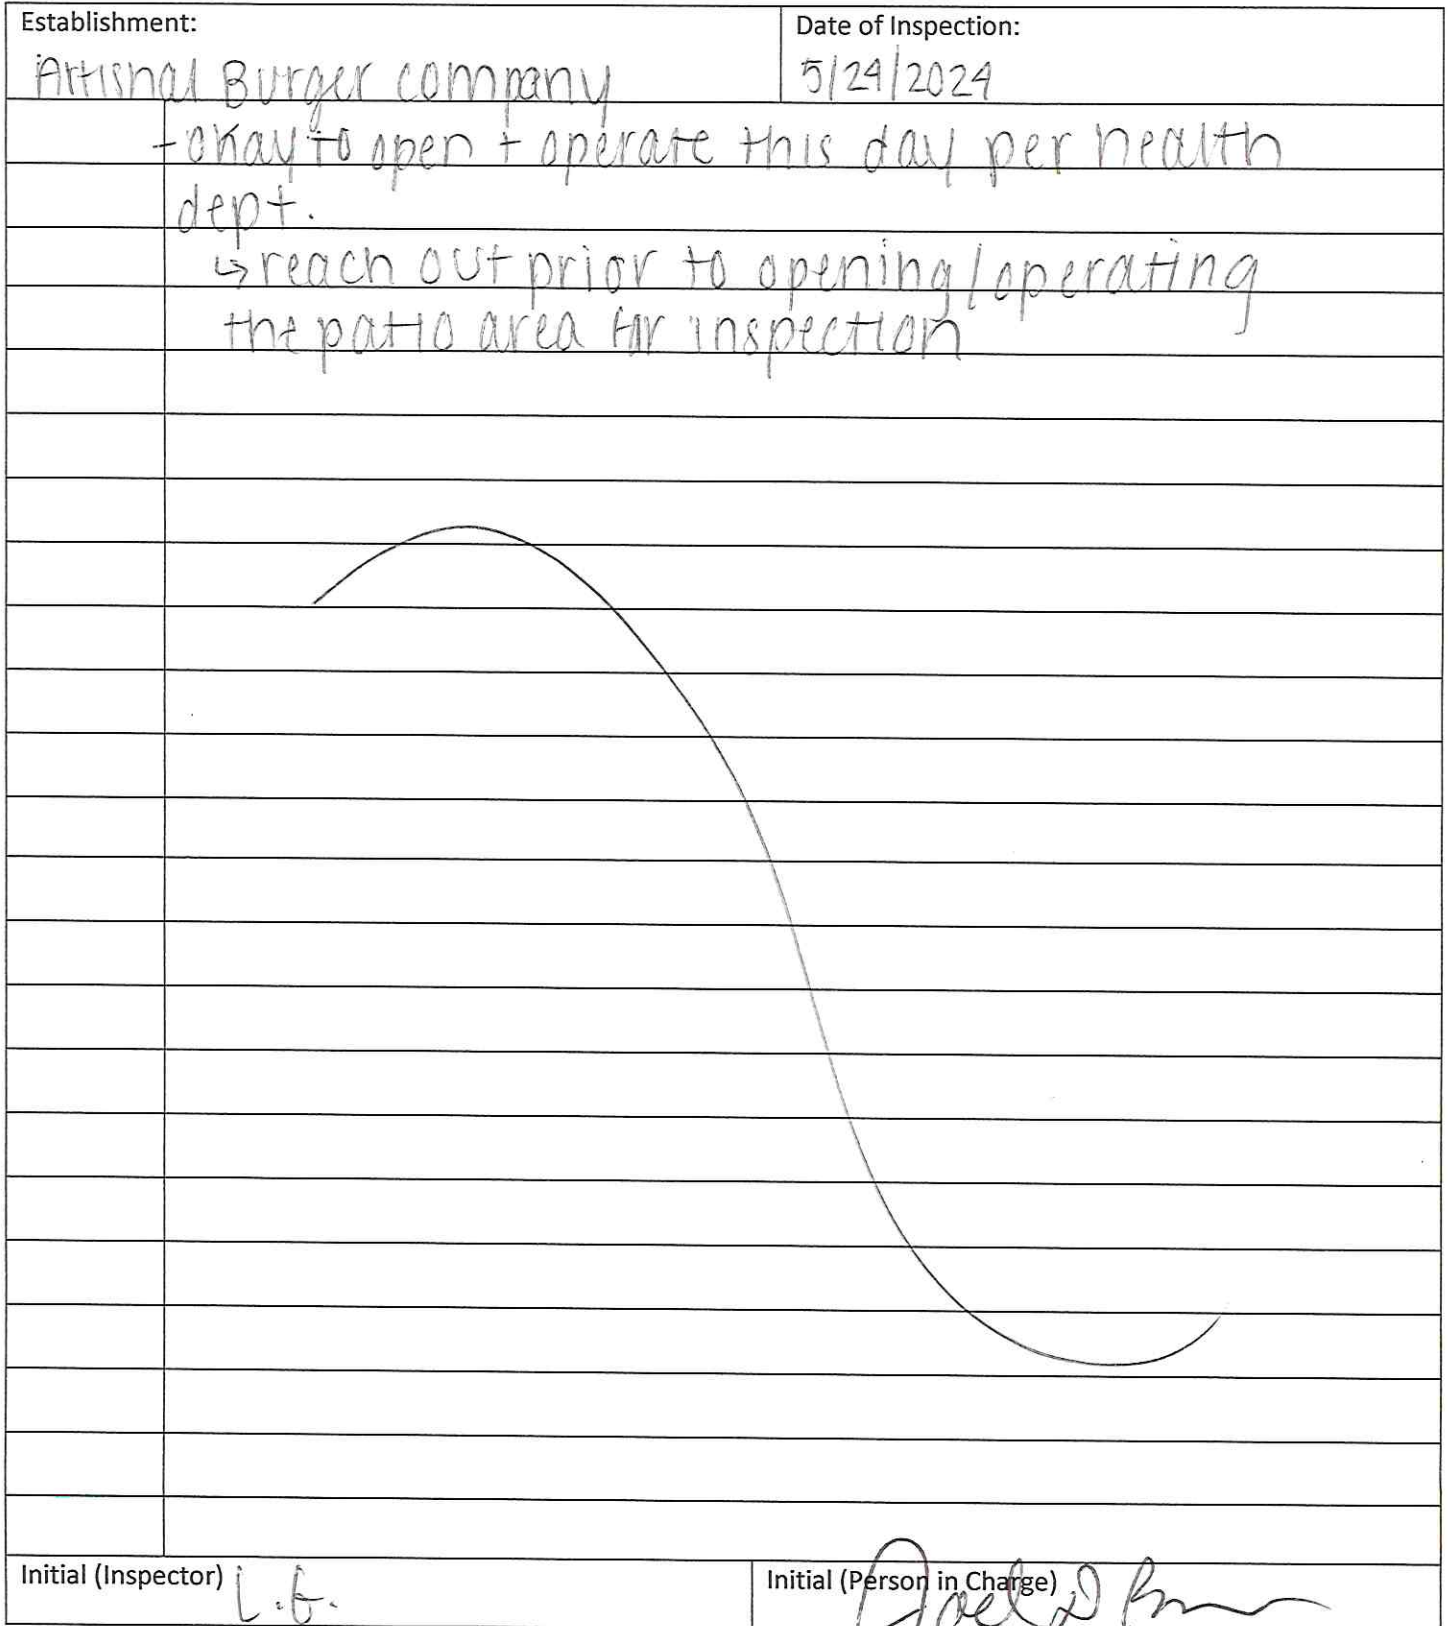 Establishment:
Date of Inspection:
Artisnal Burger company
5/24/2024
- okay to open + operate this day per health
dept.
↳ reach out prior to opening/operating
the patio area for inspection
Initial (Inspector)
Initial (Person in Charge)